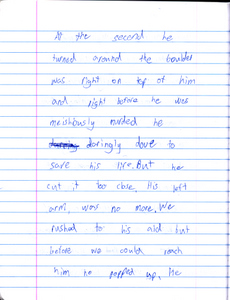 At the second he
turned around the boulder
was right on top of him
and right before he was
he
daringly dove to
save his life. But he
cut it too close. His left
arm, was no more. We
rushed to his aid but
before we could reach
him he popped up. He